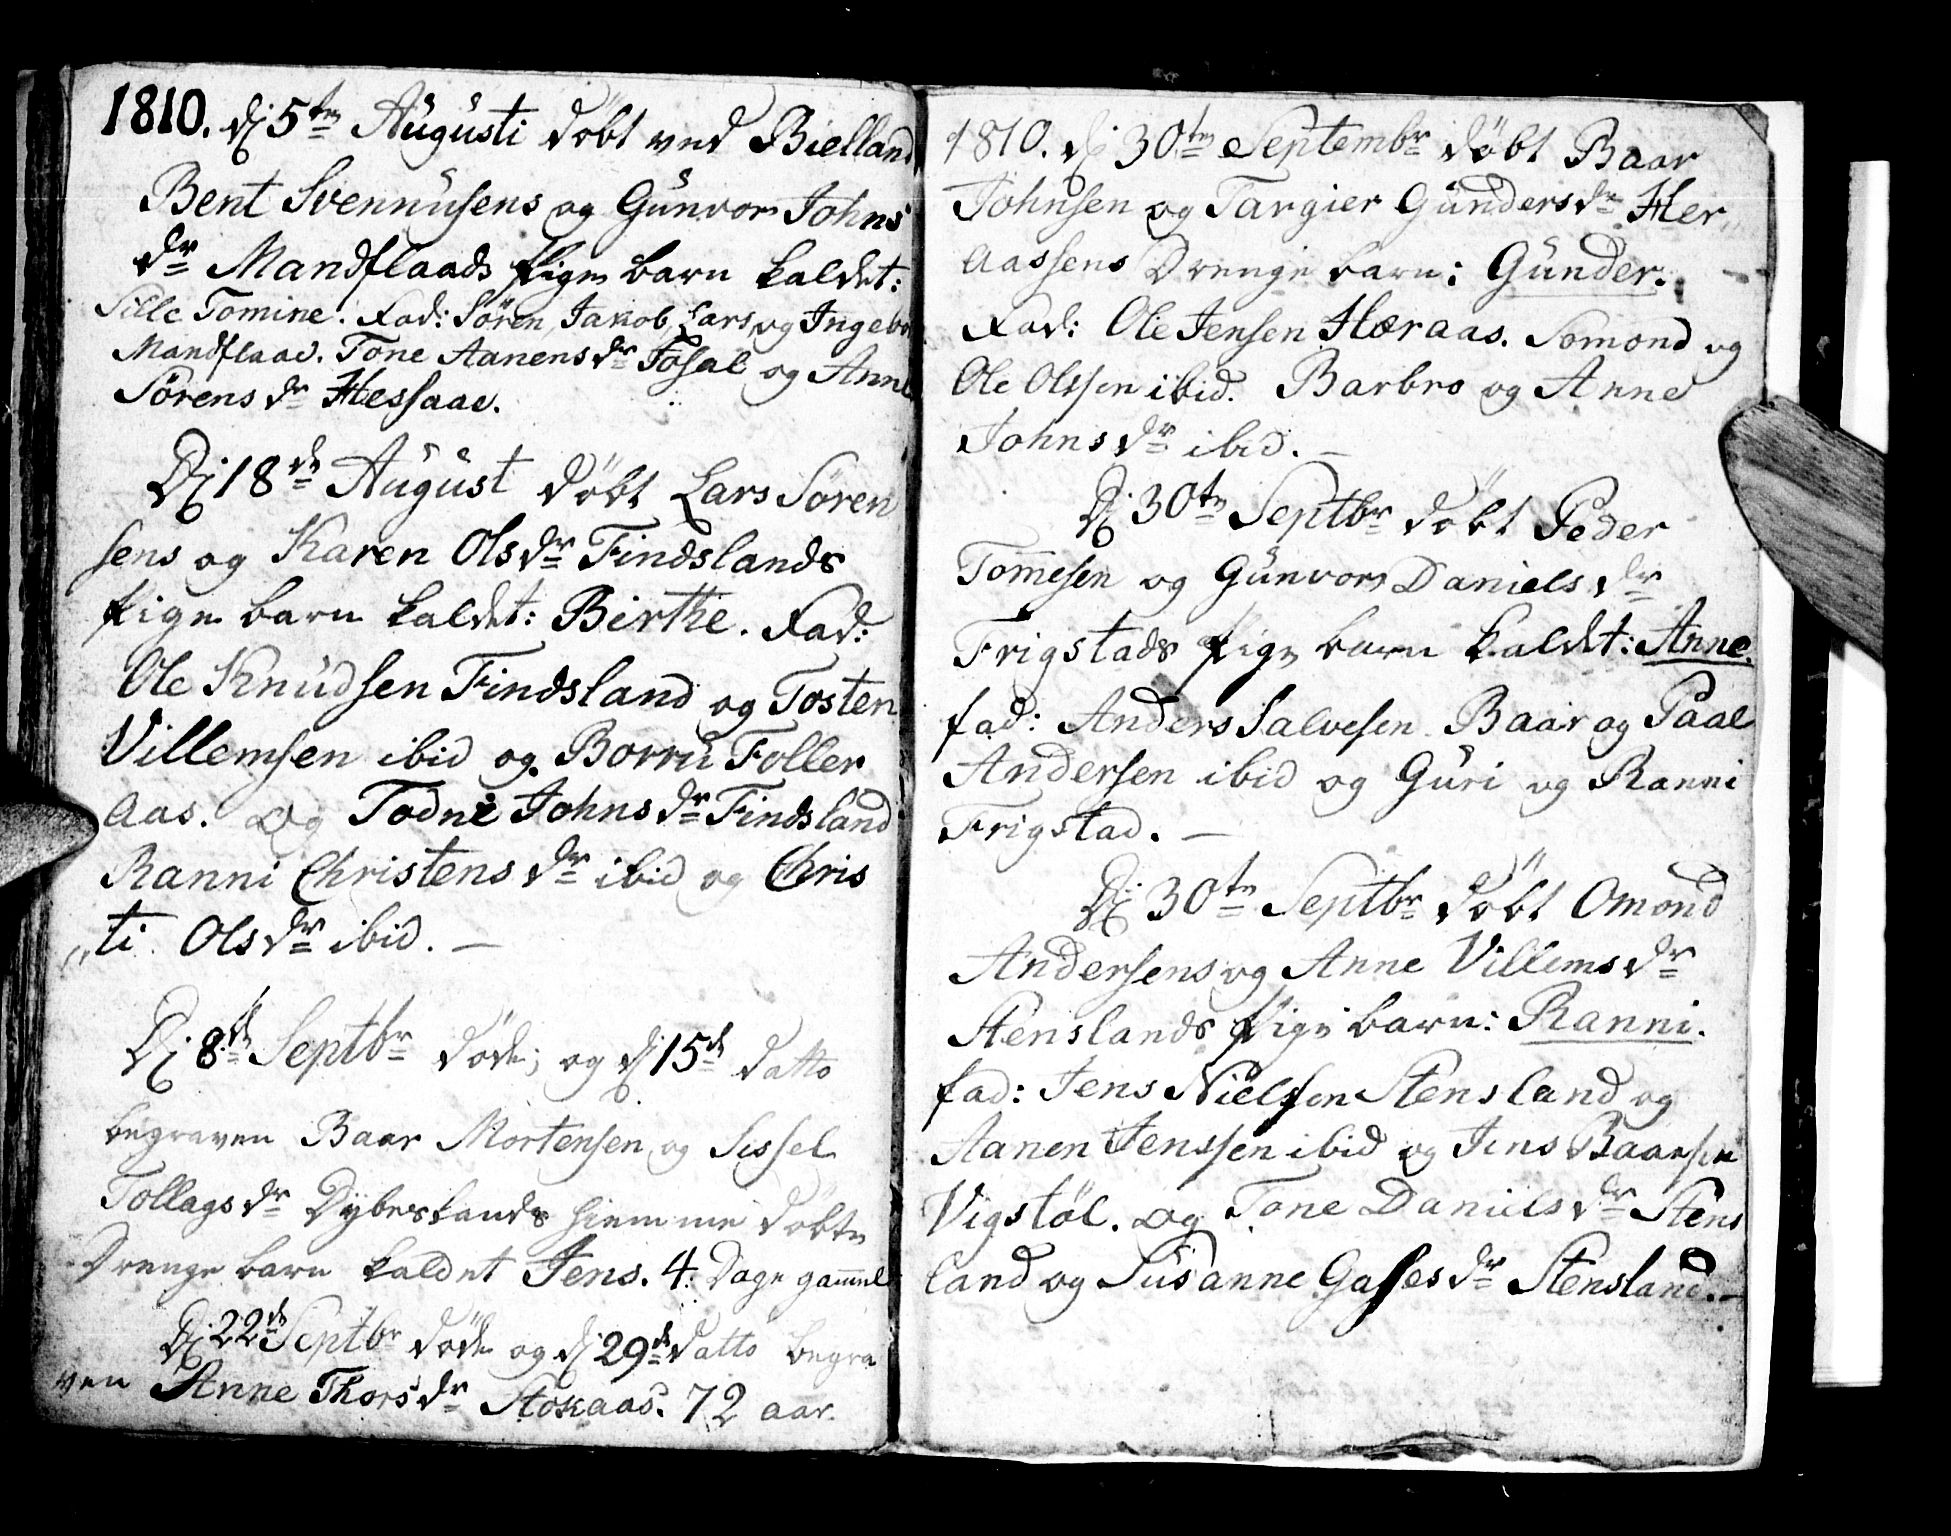 1810. dj 5te Augusti döbt ved Bielland
Bent Svennusens og Gunvor Johns
dr Mandflaads Pige barn kaldet:
Sille Tomine. Fad: Sören, Jakob, Lars og Ingebor
Mandflaad. Tone Aanensdr Fosal og Anne
Sörensdr Hessaae.
Dj 18de August döbt Lars Sören
sens og Karen Olsdr Findslands
Pige barn kaldet: Birthe. Fad:
Ole Knudsen Findsland og Tosten
Villemsen ibid og Borru Foller
aas. Og Todne Johnsdr Findsland
Ranni Christensdr ibid og Chris
„ti Olsdr ibid. —
Dj 8de Septbr döde; og dj 15de datto
begraven Baar Mortensen og Sissel
Tollagsdr Dybeslands hiemme döbte
Drenge barn kaldet Jens. 4: Dage gam̅el
Dj 22de Septbr döde og dj 29de datto begra
ven Anne Thorsdr Stokaas. 72 aar.
1810. dj 30te Septembr döbt Baar
Johnsen og Targier Gundersdr Her„
aassens Drenge barn: Gunder.
Fad: Ole Jensen Heraas. Somond og
Ole Olssen ibid. Barbro og Anne
Johnsdr ibid. —
Dj 30te Septbr döbt Peder
Tom̅esen og Gunvor Danielsdr
Frigstads Pige barn kaldet: Anne.
fad: Anders Salvesen Baar og Paal
Andersen ibid og Guri og Ranni
Frigstad. —
Dj 30te Septbr döbt Omond
Andersens og Anne Villemsdr
Stenslands Pige barn: Ranni.
fad: Jens Nielsen Stensland og
Aanen Jenssen ibid og Jens Baarsen
Vigstöl. Og Tone Danielsdr Stens
land og Susanne Gasesdr Stensland. —